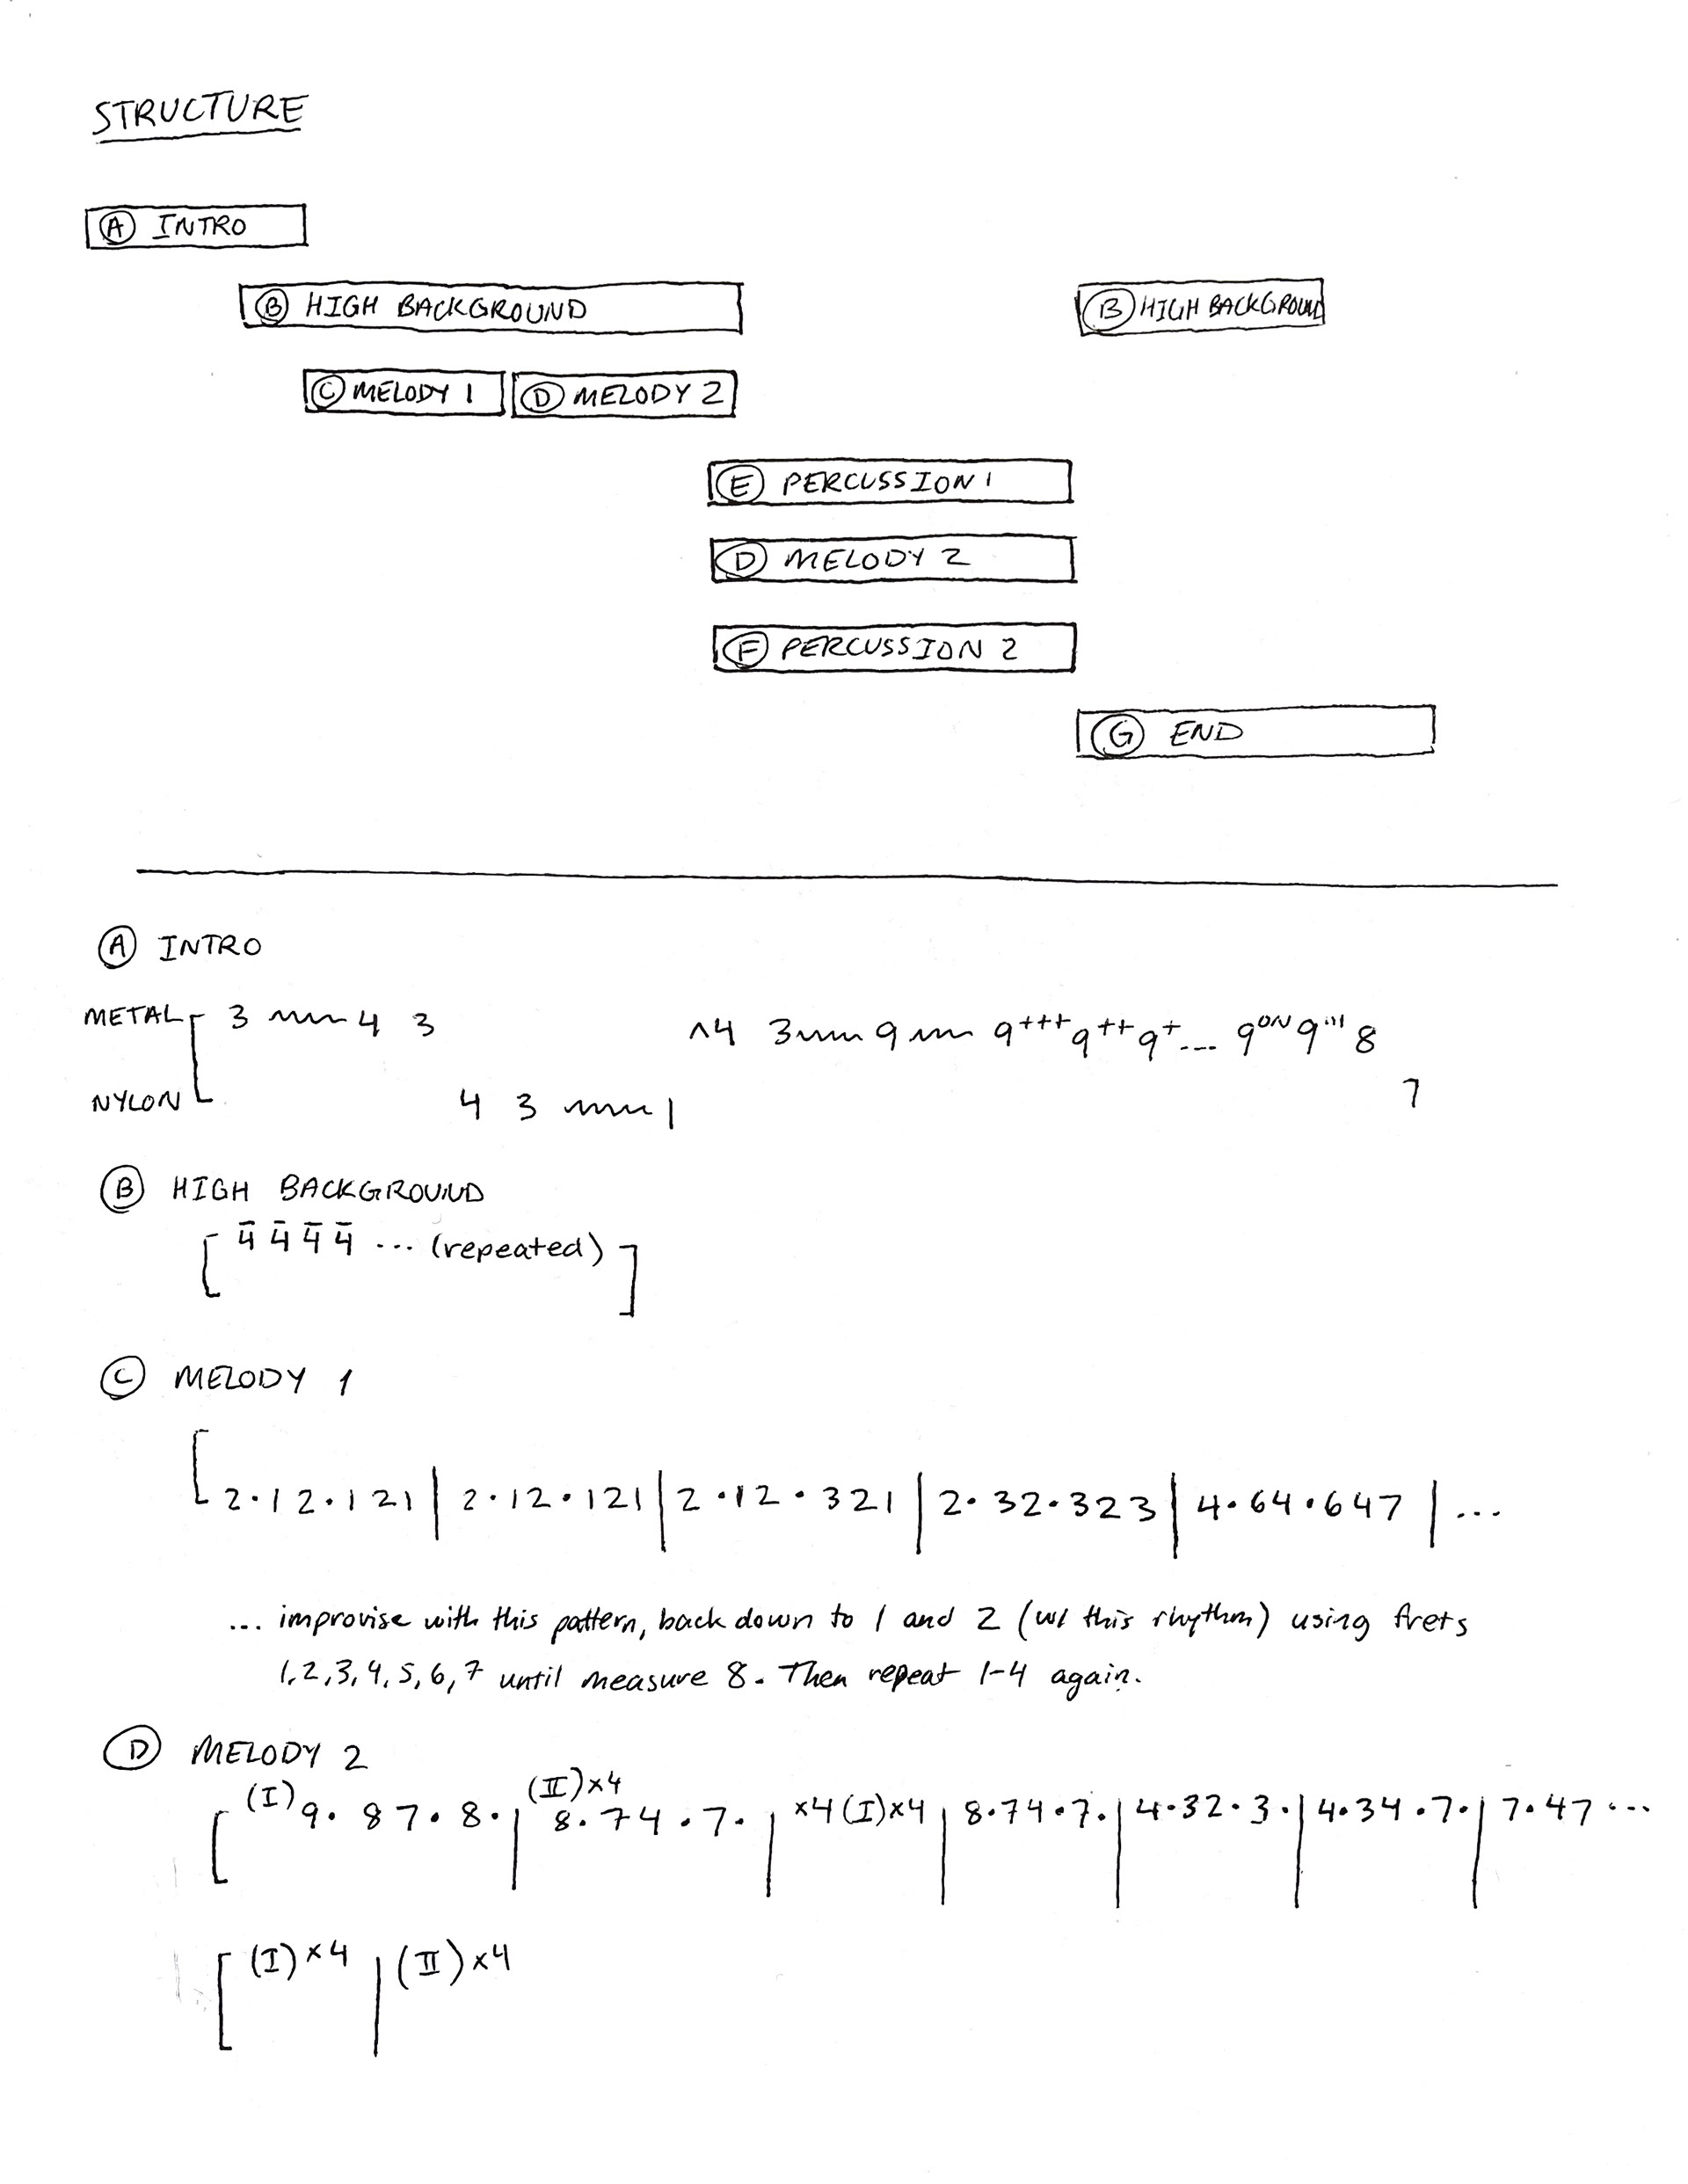 STRUCTURE
Ⓐ INTRO
Ⓑ HIGH BACKGROUND Ⓑ HIGH BACKGROUND
Ⓒ MELODY 1 Ⓓ MELODY 2
Ⓔ PERCUSSION 1
Ⓓ MELODY 2
Ⓕ PERCUSSION 2
Ⓖ END
Ⓐ INTRO
METAL 3 4 3 ^4 3 9 9+++ 9++ 9+... 9ON 9''' 8
NYLON 4 3 1 7
Ⓑ HIGH BACKGROUND
[ 4̄ 4̄ 4̄ 4̄ ... (repeated) ]
Ⓒ MELODY 1
[ 2·12·121 | 2·12·121 | 2·12·321 | 2·32·323 | 4·64·647 | ...
... improvise with this pattern, back down to 1 and 2 (w/ this rhythm) using frets
1,2,3,4,5,6,7 until measure 8. Then repeat 1-4 again.
Ⓓ MELODY 2
[ (I) 9·87·8· | (II)×4 8·74·7· | ×4 (I)×4 | 8·74·7· | 4·32·3· | 4·34·7· | 7·47 ...
[ (I)×4 | (II)×4